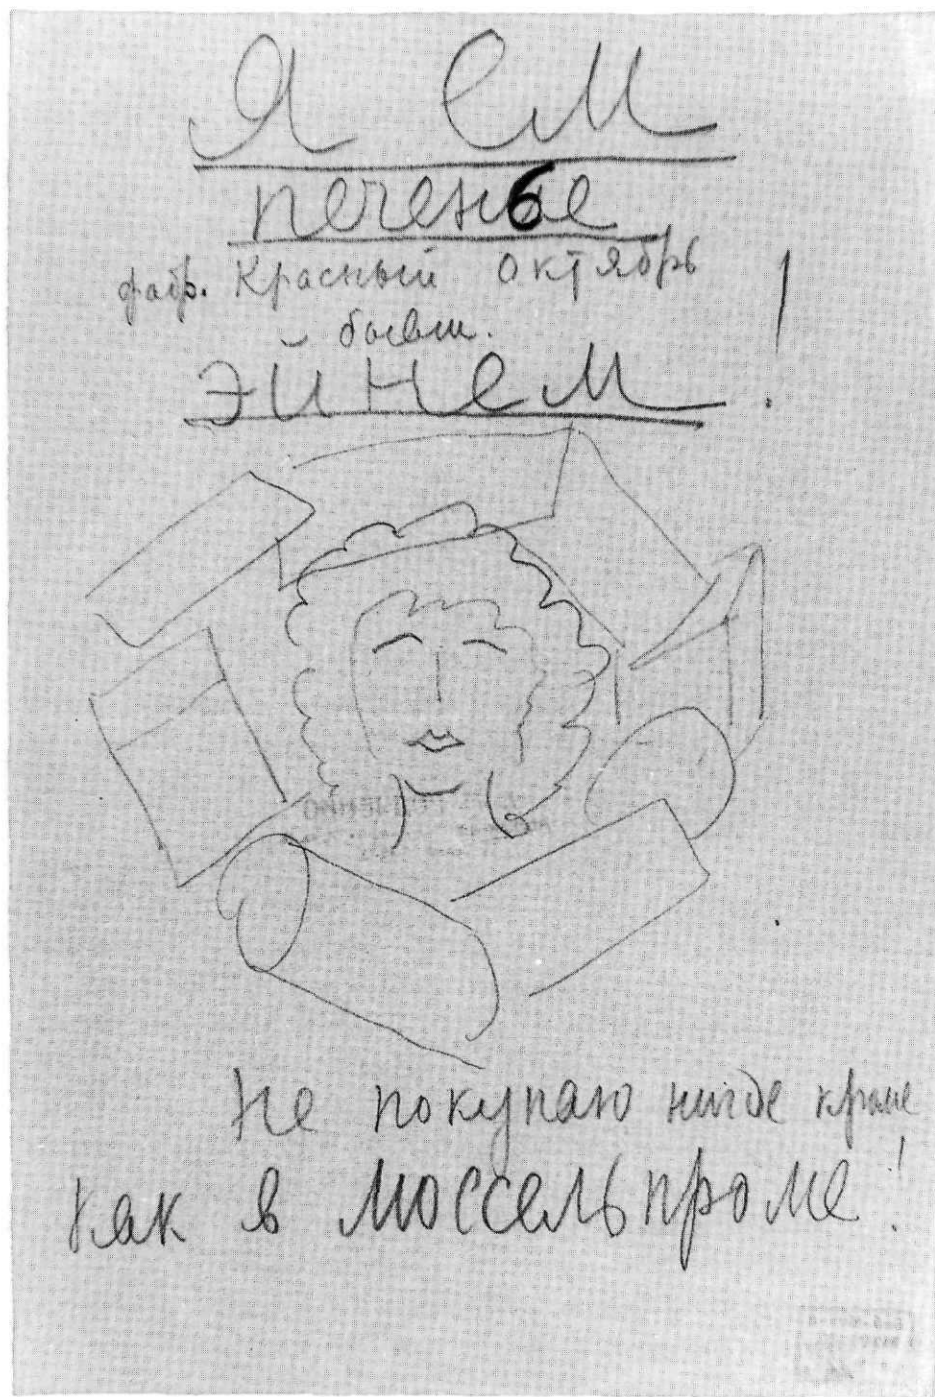 Я ем
печенье
фабр. Красный октябрь
бывш.
Эйнем!
Не покупаю нигде кроме
как в Моссельпроме!